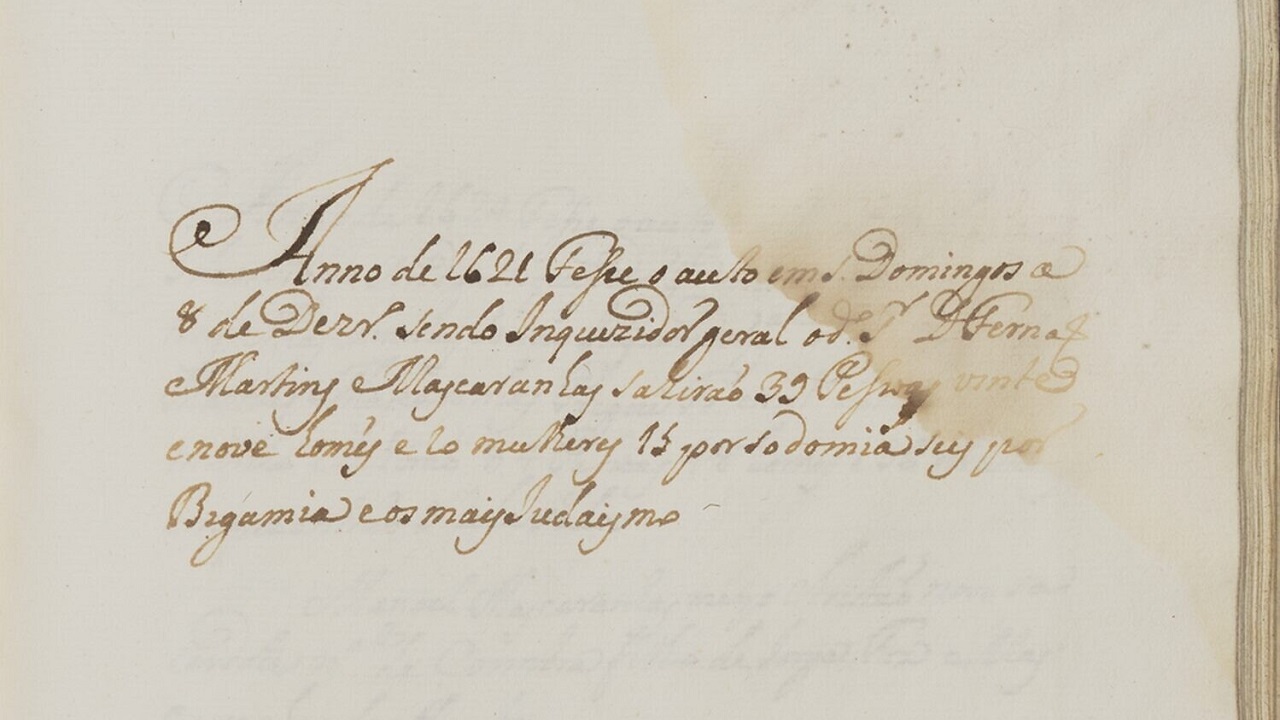 Anno de 1621 Fesse o auto em S. Domingos a
8 de Dezr.º sendo Inquizidor geral o d.º Sr. D Fernaõ
Martins Mascaranhas sahiraõ 39 Pessoas vinte
e nove homẽs e 10 mulheres 15 por sodomia seis por
Bigamia e os mais Judaismo